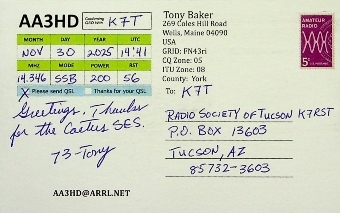 AA3HD Confirming QSO With K7T
MONTH DAY YEAR UTC
NOV 30 2025 14:41
MHZ MODE POWER RST
14.346 SSB 200 56
X Please send QSL Thanks for QSL
Greetings. Thanks
for the Cactus SES.
73-Tony
AA3HD@ARRL.NET
Tony Baker
269 Coles Hill Road
Wells, Maine 04090
USA
GRID: FN43ri
CQ Zone: 05
ITU Zone: 08
County: York
To: K7T
RADIO SOCIETY OF TUCSON K7RST
P.O. BOX 13603
TUCSON, AZ
85732-3603
AMATEUR
RADIO
5¢